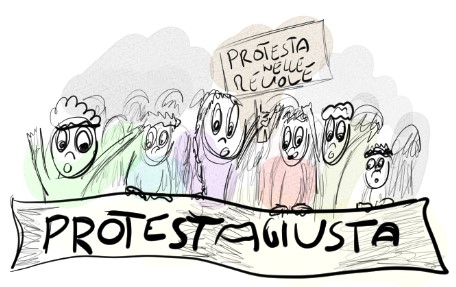 PROTESTA
NELLE
REUOLE
PROTESTAGIUSTA